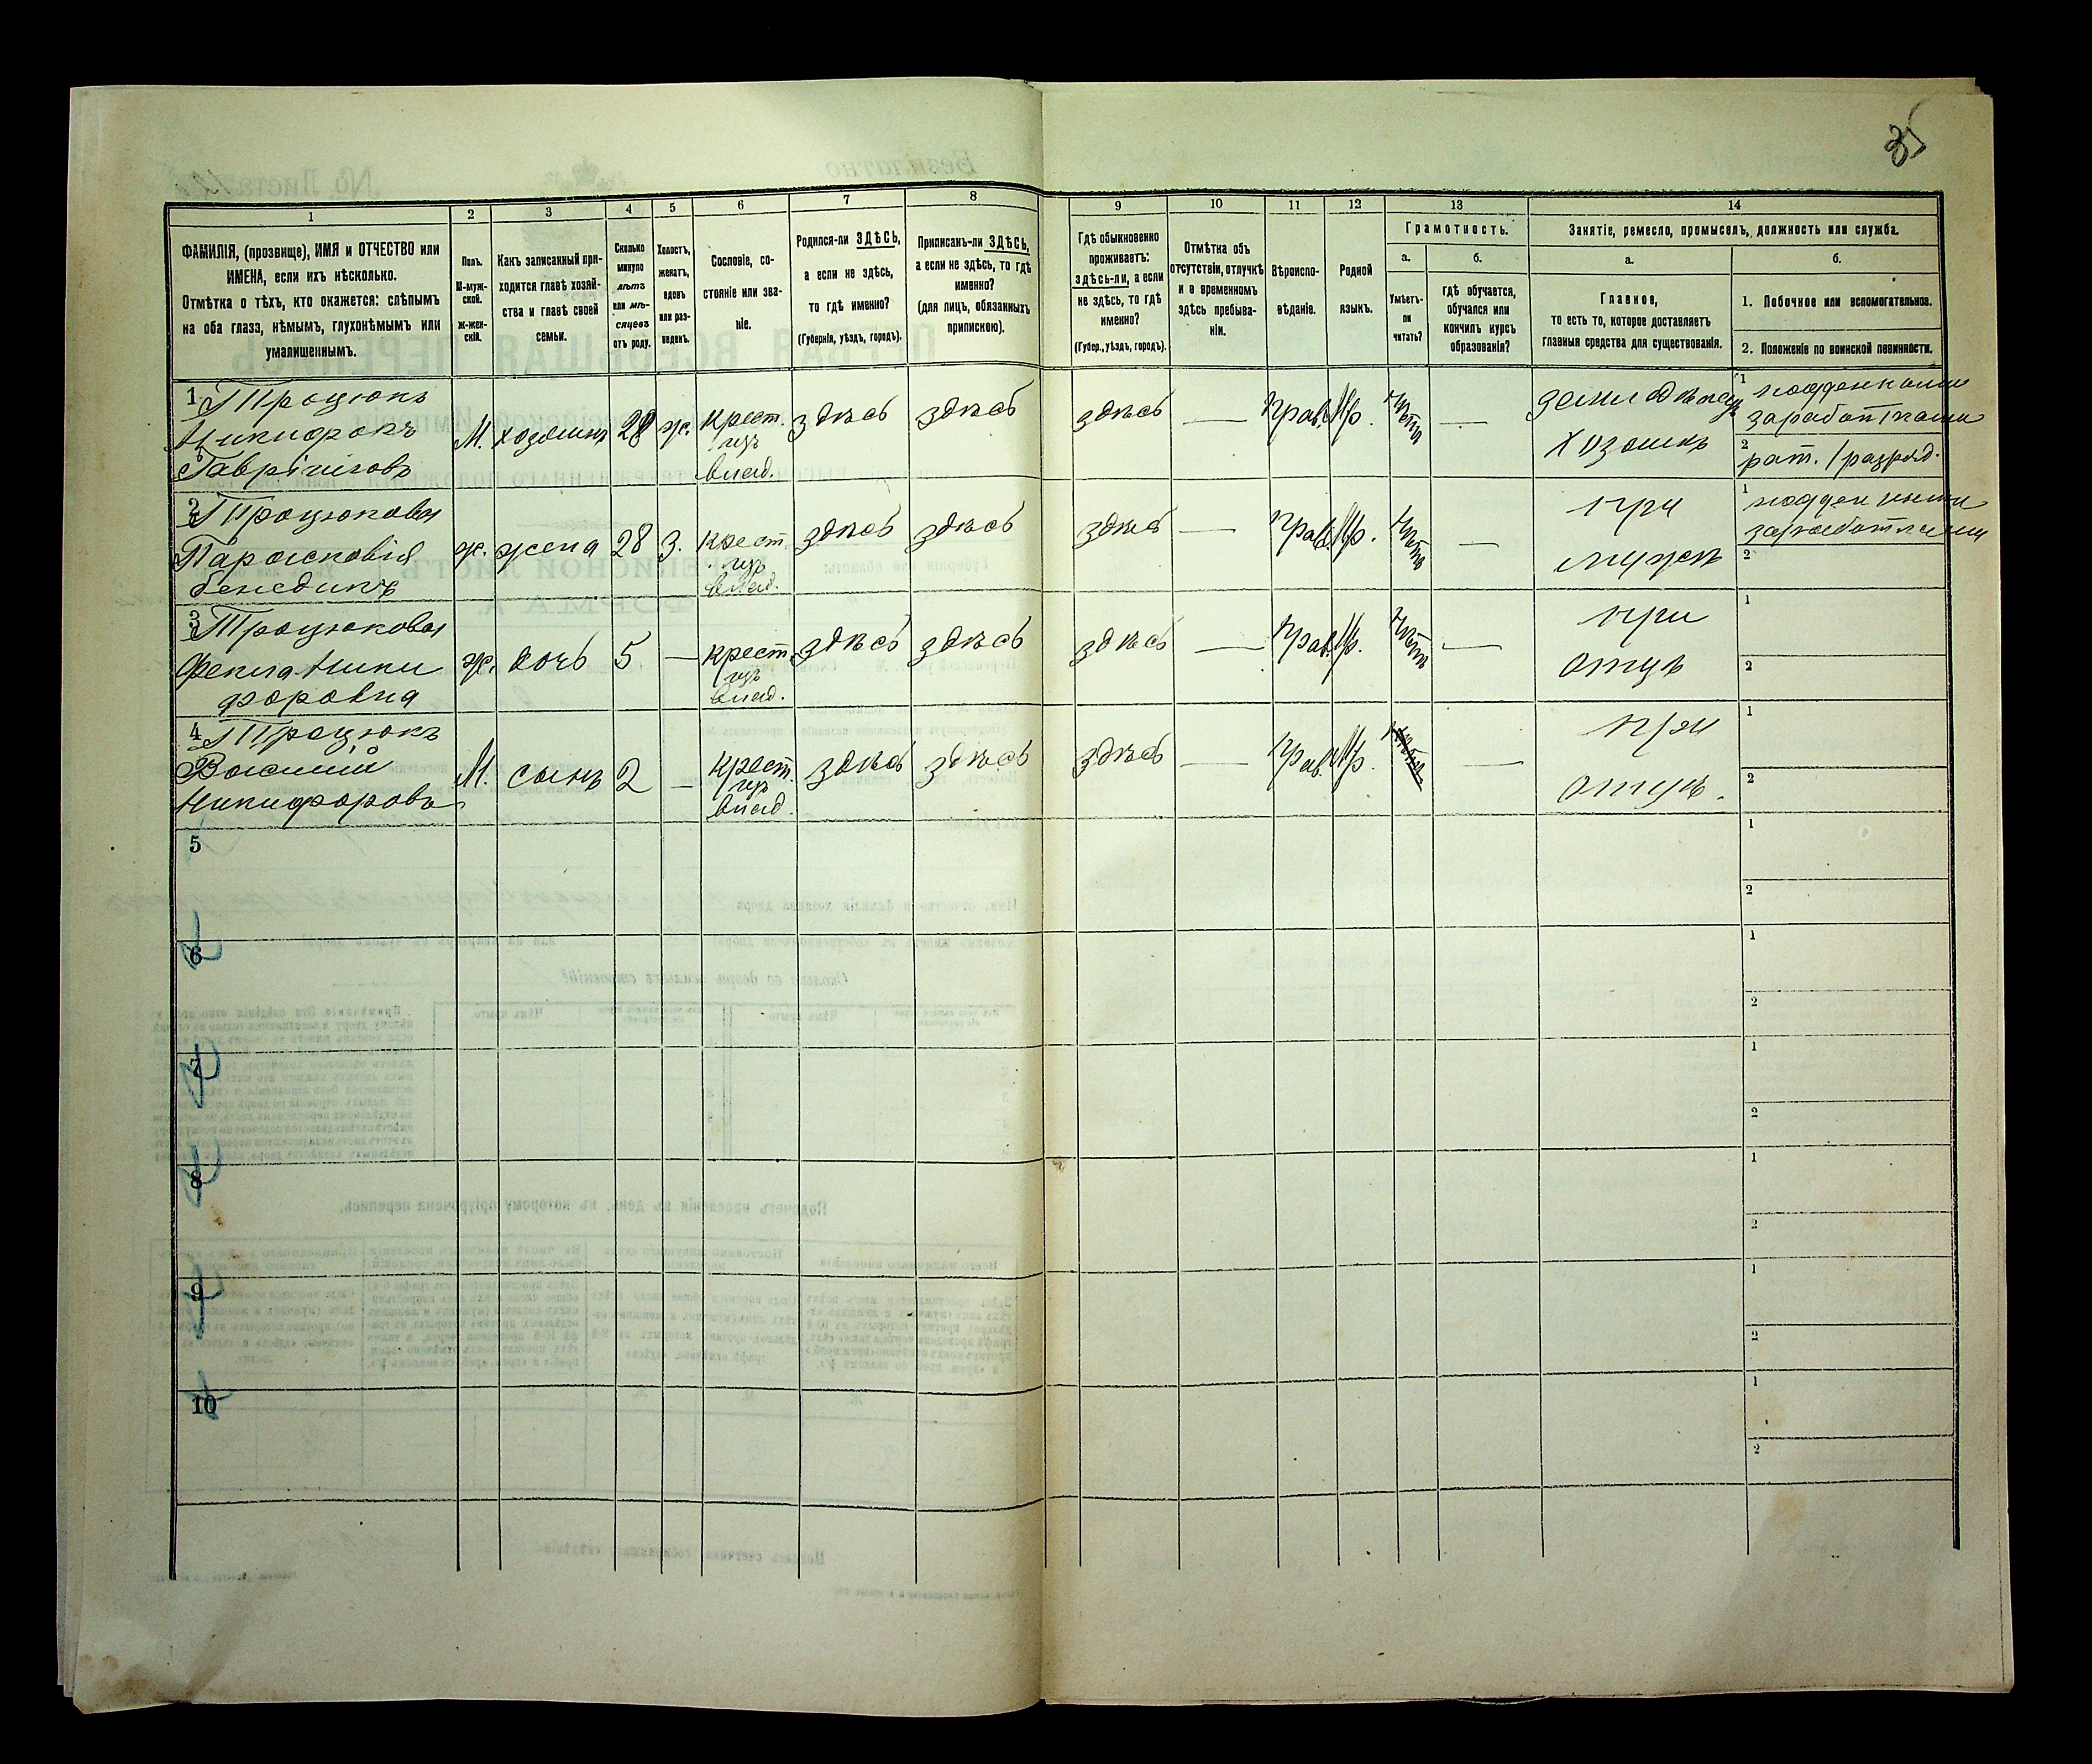 35
1 2 3 4 5 6 7 8 9 10 11 12 13 14
ФАМИЛІЯ, (прозвище), ИМЯ и ОТЧЕСТВО или
ИМЕНА, если ихъ нѣсколько.
Отмѣтка о тѣхъ, кто окажется: слѣпымъ
на оба глаза, нѣмымъ, глухонѣмымъ или
умалишеннымъ.
Полъ.
М-муж-
ской.
Ж-жен-
скій.
Какъ записанный при-
ходится главѣ хозяй-
ства и главѣ своей
семьи.
Сколько
минуло
лѣтъ
или мѣ-
сяцевъ
отъ роду.
Холостъ,
женатъ,
вдовъ
или раз-
веденъ.
Сословіе, со-
стояніе или зва-
ніе.
Родился-ли ЗДѢСЬ,
а если не здѣсь,
то гдѣ именно?
(Губернія, уѣздъ, городъ).
Приписанъ-ли ЗДѢСЬ,
а если не здѣсь, то гдѣ
именно?
(для лицъ, обязанныхъ
припискою).
Гдѣ обыкновенно
проживаетъ:
здѣсь-ли, а если
не здѣсь, то гдѣ
именно?
(Губер., уѣздъ, городъ).
Отмѣтка объ
отсутствіи, отлучкѣ
и о временномъ
здѣсь пребыва-
ніи.
Вѣроиспо-
вѣданіе.
Родной
языкъ.
Грамотность.
а.
Умѣетъ-
ли
читать?
б.
гдѣ обучается,
обучался или
кончилъ курсъ
образованія?
Занятіе, ремесло, промыселъ, должность или служба.
а.
Главное,
то есть то, которое доставляетъ
главныя средства для существованія.
б.
1. Побочное или вспомогательное.
2. Положеніе по воинской повинности.
1 Троцюкъ
Никифоръ
Гаврііловъ
М. хозяинъ 28 ж. крест. изъ влад. здѣсь здѣсь здѣсь — Прав. Мр. нѣтъ —
земледѣлец
хозяинъ
1 подденными
заработками
2 рат. 1 разряд.
2 Троцюкова
Парасковія
Бенедикт
ж. жена 28 З. крест. изъ влад. здѣсь здѣсь здѣсь — Прав. Мр. нѣтъ —
при
мужѣ
1 подденными
заработками
2
3 Троцюкова
Фекла Ники
форовна
ж. дочь 5 — крест. изъ влад. здѣсь здѣсь здѣсь — Прав. Мр. нѣтъ —
при
отцѣ
1
2
4 Троцюкъ
Василій
Никифоровъ
М. сынъ 2 — крест. изъ влад. здѣсь здѣсь здѣсь — Прав. Мр. —
при
отцѣ.
1
2
5
1
2
6
1
2
7
1
2
8
1
2
9
1
2
10
1
2